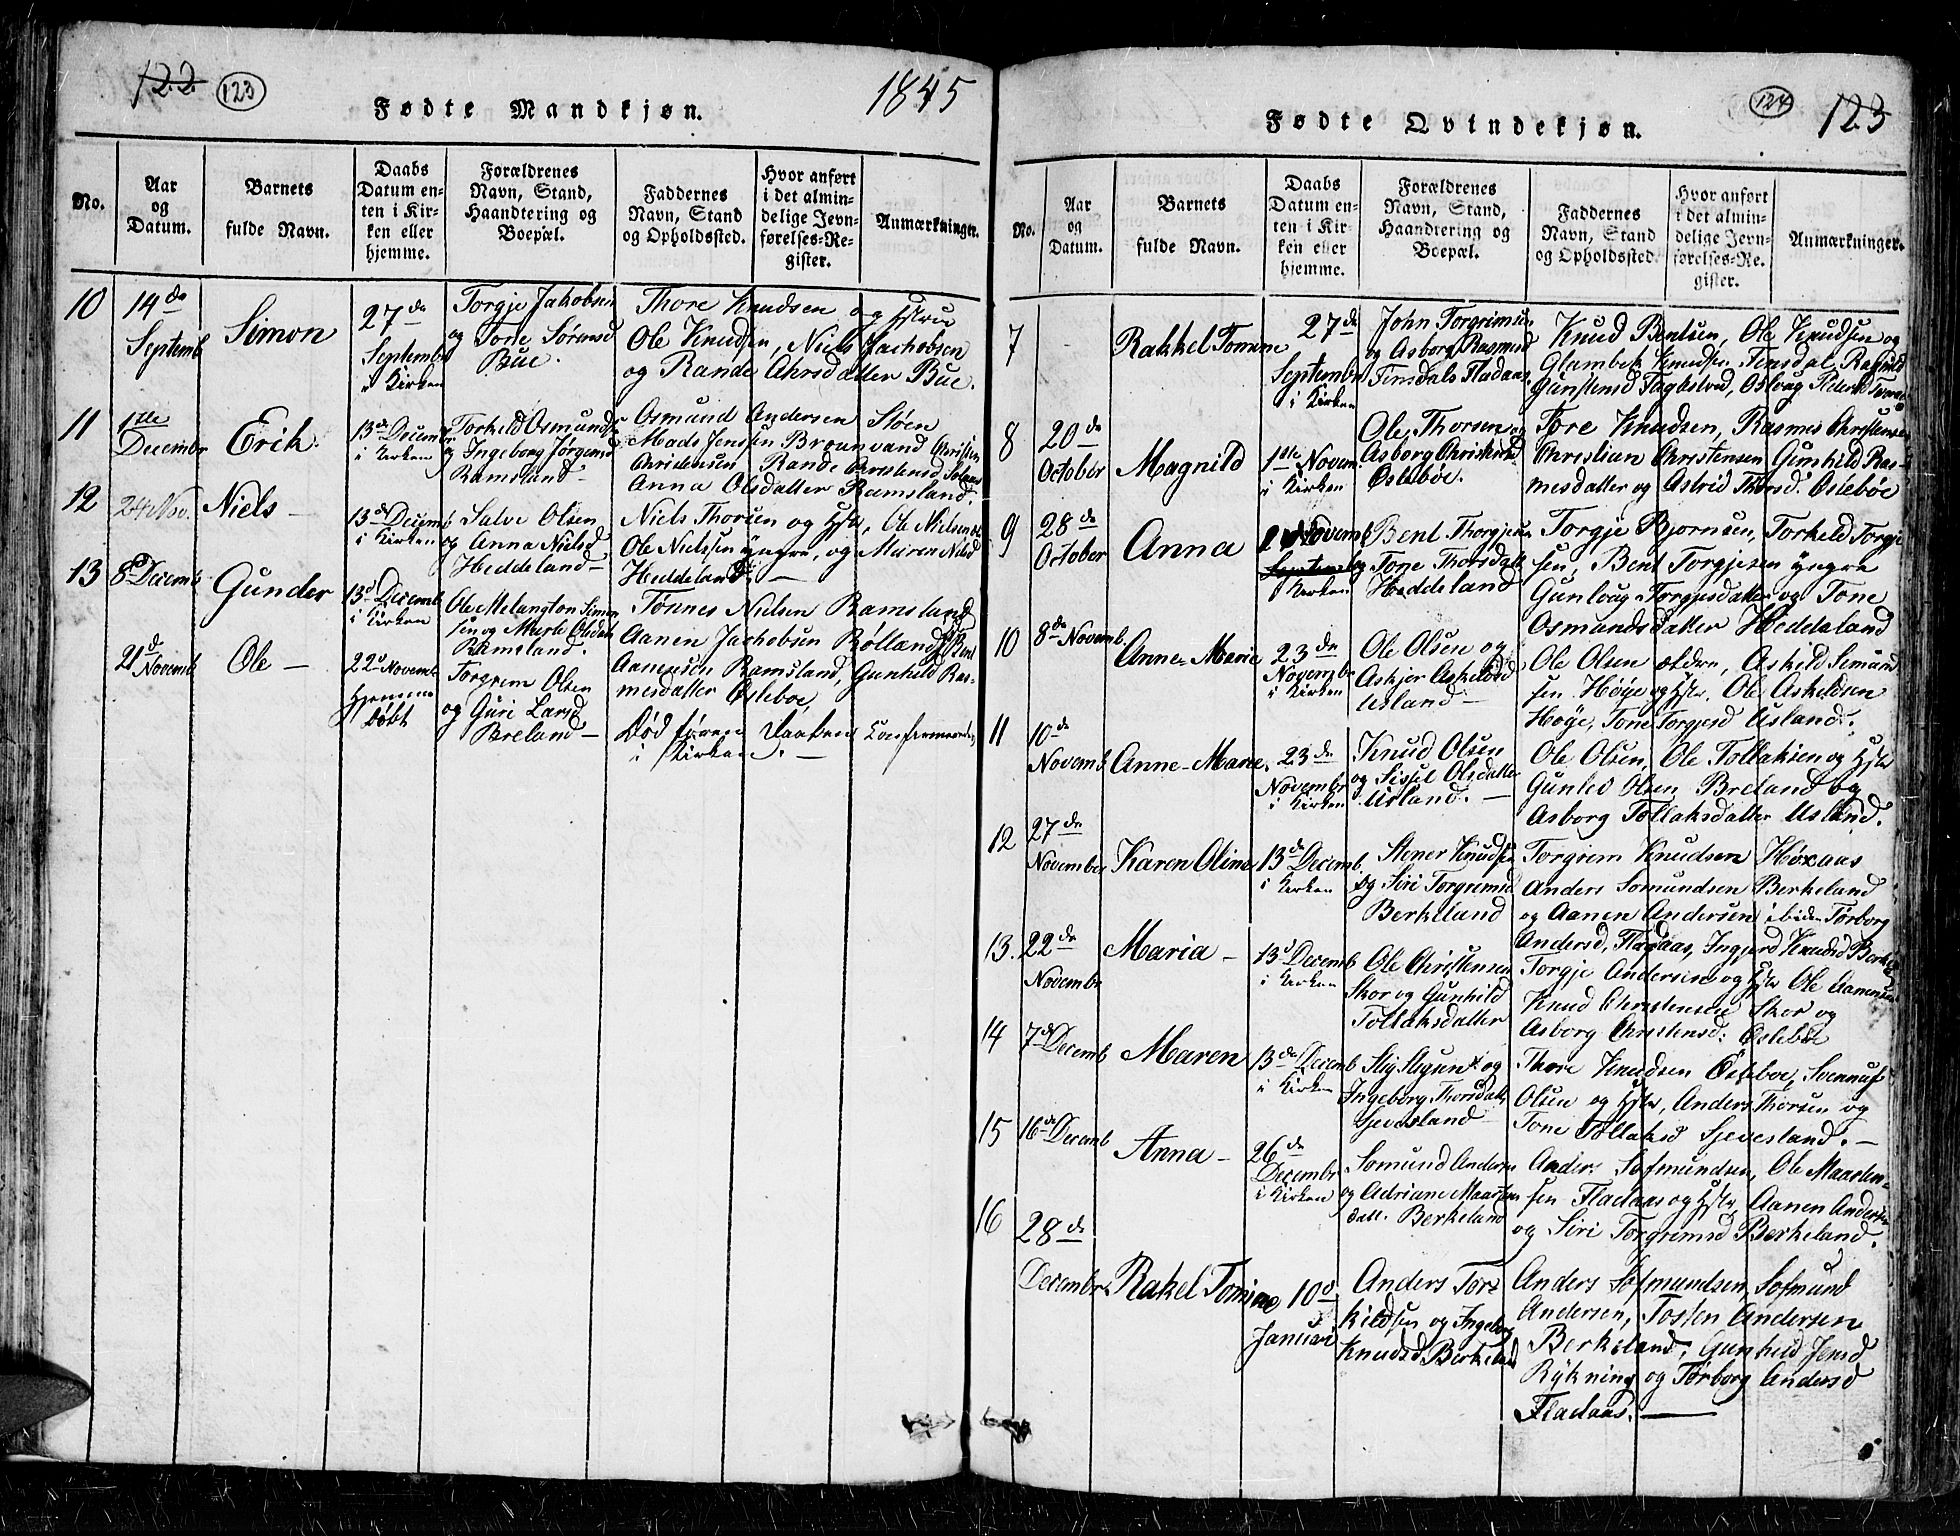 122 123
1845
Fødte Mandkjøn.
No.
Aar og Datum.
Barnets fulde Navn.
Daabs Datum enten i Kirken eller hjemme.
Forældrenes Navn, Stand, Haandtering og Boepæl.
Faddernes Navn, Stand og Opholdssted.
Hvor anført i det almindelige Jevnførelses-Register.
Anmærkninger.
10
14de Septemb
Simon
27de Septembr i Kirken
Torgje Jakobsen
og Tone Sørensd
Bue.
Thore Knudsen og Hstrue
Ole Knudsen, Niels Jachobsen
og Rande Ahrsdatter Bue.
11
1ste Decembr
Erik.
13de Decembr i Kirken
Torkeld Osmundsen
og Ingeborg Jørgensd
Ramsland
Osmund Andersen Støen
Mads Jensen Brounvand Christen
Christensen Rande Christensd
Anna Olsdatter Ramsland.
12
24 Nov.
Niels —
13de Decemb i Kirken
Salve Olsen
og Anna Nielsd
Heddeland —
Niels Thorsen og Hstr, Ole Nielsen
Ole Nielssen yngre, og Maren Nielsd
Heddeland. —
13
8de Decemb
Gunder
13de Decemb i Kirken
Ole Melangton Simon
sen og Marte Olsdatt
Ramsland.
Tønnes Nielsen Ramsland
Aanen Jachobsen Bølland,
Aanensen Ramsland, Gunhild Ras-
mesdatter Osleboe,
21de Novemb
Ole —
22de Novemb
Hjemme
døbt
Torgrem Olsen
og Guri Larsd
Breland —
Død føren Daaben Confermeredes
i Kirken. —
124 123
Fødte Qvindekjøn.
No.
Aar og Datum.
Barnets fulde Navn.
Daabs Datum enten i Kirken eller hjemme.
Forældrenes Navn, Stand, Haandtering og Boepæl.
Faddernes Navn, Stand og Opholdssted.
Hvor anført i det almindelige Jevnførelses-Register.
Anmærkninger.
7
-
Rakkel Tomine
27de Septembr i Kirken
John Torgrimsen
og Asborg Rasmusd
Tinsdals Fladaas
Knud Bentsen, Ole Knudsen og
Glambek Knudsen Tinsdal, Ragnild
Gunstensd Fagelstved, Oslaug Pedersd
8
20de October
Magnild
1ste Novem. i Kirken
Ole Thorsen og
Asborg Christensd
Oslebøe.
Tore Knudsen, Rasmes Christensen
Christian Christensen Gunhild Ras-
mesdatter og Astrid Thorsd. Oslebøe
9
28de October
Anna
2 Novemb Septemb Kirken
Bent Thorgjesen
og Tone Thorsdatt
Heddeland
Torgje Bjornsen, Torkeld Torgje
sen, Bent Torgjesen yngre
Gunloug Torgjesdatter og Tone
Osmundsdatter Heddeland
10
8de Novemb
Anne-Marie
23de Novembr i Kirken
Ole Olsen og
Askjer Askeldsd
Usland —
Ole Olsen ældre, Askild Semund
sen Høye og Hstr. Ole Askeldsen
Høye, Tone Torgjesd Usland.
11
10de Novemb
Anne-Marie.
23de Novembr i Kirken
Knud Olsen
og Sissel Olsdatter
Usland. —
Ole Olsen, Ole Tollaksen og Hstr
Gunled Olsen Breland og
Asborg Tollaksdatter Usland.
12
27de November
Karen Oline
13de Decemb. i Kirken
Stener Knudsen
og Siri Torgremsd
Berkeland
Torgrem Knudsen Høxaas
Anders Somundsen Berkeland
og Aanen Andersen ibidem Tørborg
Andersd, Fladaas, Ingjerd Knudsd Berkel
13.
22de Novembr
Maria —
13de Decemb i Kirken
Ole Christensen
Skor og Gunhild
Tollaksdatter
Torgje Andersen og Hstr Ole Aanensen
Knud Christensen Skor og
Asborg Christensd. Oslebøe
14
7de Decemb
Maren
13de Decemb i Kirken
Stig og
Ingeborg Thorsdatt
Sjevesland
Thore Knudsen Osleboe, Svennuf
Olsen og Hstr, Anders Thorsen og
Tone Tollaksd Sjevesland. —
15
16de Decemb
Anna —
26de Decembr i Kirken
Somund Anders
og Adriane Maarten
datt. Berkeland
Anders Sofmundsen, Ole Maarten-
sen Fladaas og Hstr, Aanen Andersen
og Siri Torgremsd Berkeland.
16
28de Decembr.
Rakel Tomine
10de Januari
Anders Tor
kildsen og Ingeborg
Knudsd Berkeland
Anders Sofmundsen, Sofmund
Andersen, Tosten Andersen
Berkeland, Gunhild Jensd
Rykning og Tørborg Andersd
Fladaas. —